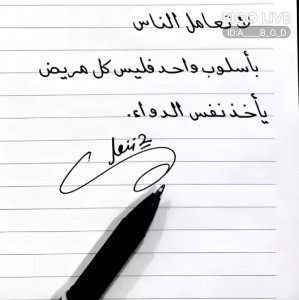 BIGO LIVE
ID:A___B_O_D
لا تعامل الناس
بأسلوب واحد فليس كل مريض
يأخذ نفس الدواء.